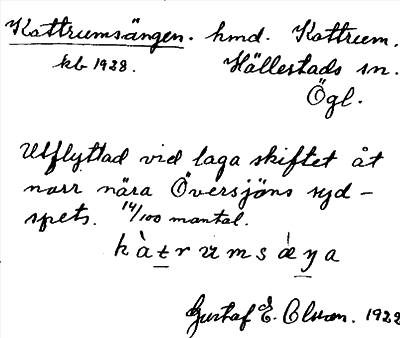 Kattrumsängen. hmd. Kattrum.
kb 1928. Hällestads sn.
Ögl.
Utflyttad vid laga skiftet åt
norr nära Översjöns syd-
spets. 14/100 mantal.
Gustaf E. Olsson. 1928